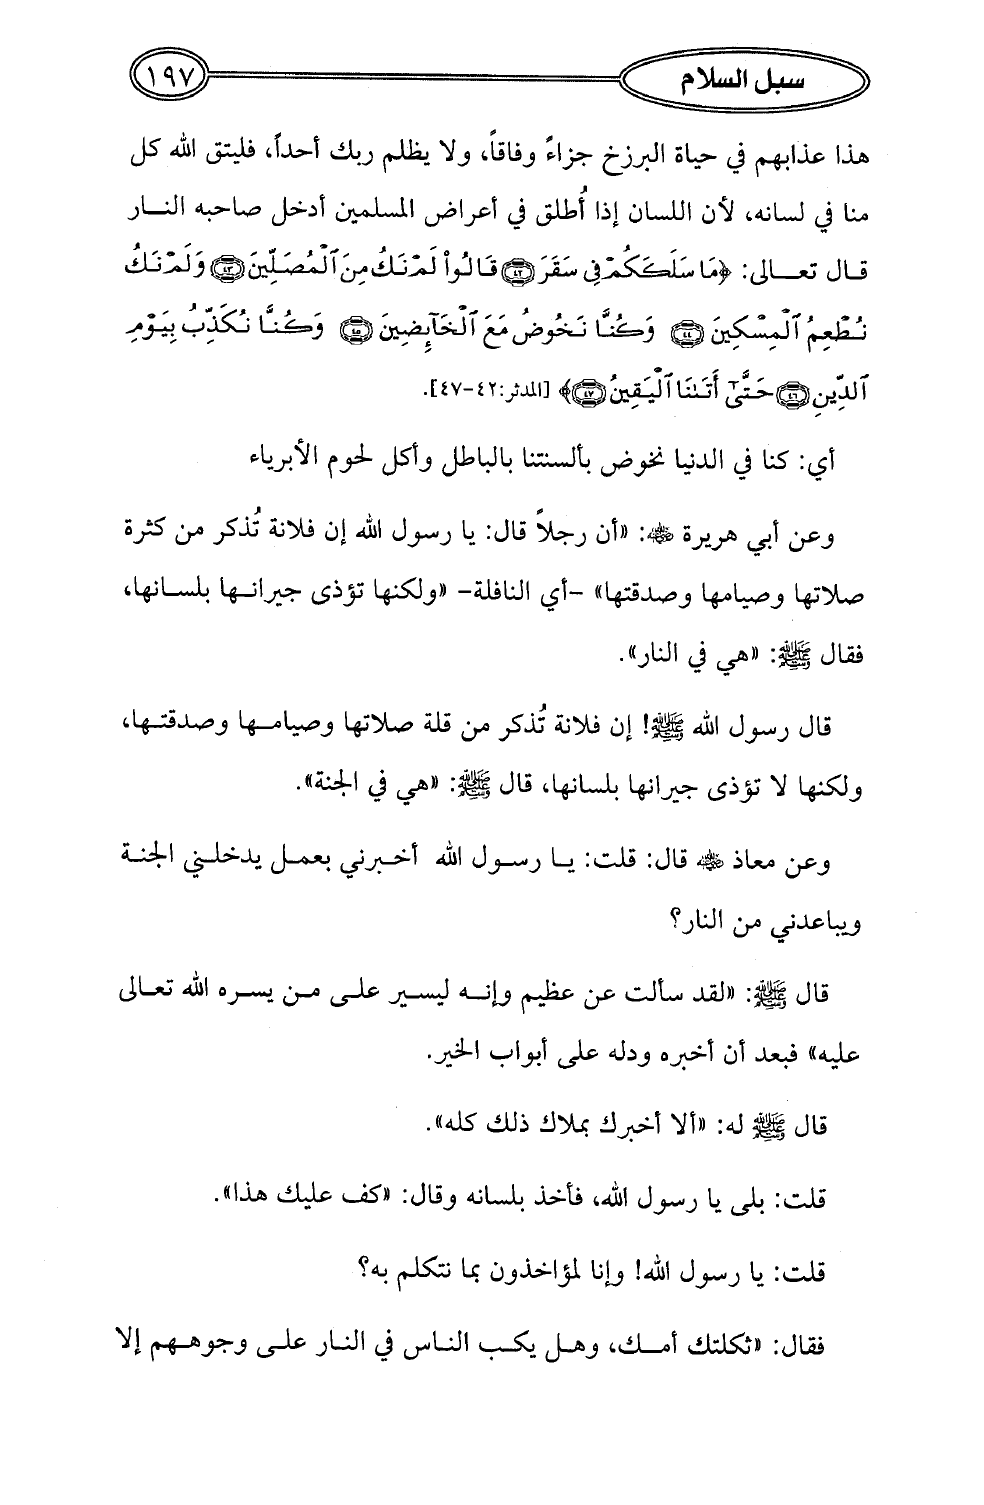 سبل السلام
١٩٧
هذا عذابهم في حياة البرزخ جزاءً وفاقاً، ولا يظلم ربك أحداً، فليتق الله كل
منا في لسانه، لأن اللسان إذا أُطلق في أعراض المسلمين أدخل صاحبه النار
قال تعالى: ﴿مَا سَلَكَكُمْ فِي سَقَرَ ٤٢ قَالُوا۟ لَمْ نَكُ مِنَ ٱلْمُصَلِّينَ ٤٣ وَلَمْ نَكُ
نُطْعِمُ ٱلْمِسْكِينَ ٤٤ وَكُنَّا نَخُوضُ مَعَ ٱلْخَآئِضِينَ ٤٥ وَكُنَّا نُكَذِّبُ بِيَوْمِ
ٱلدِّينِ ٤٦ حَتَّىٰٓ أَتَىٰنَا ٱلْيَقِينُ ٤٧﴾ [المدثر:٤٢-٤٧].
أي: كنا في الدنيا نخوض بألسنتنا بالباطل وأكل لحوم الأبرياء
وعن أبي هريرة ﷺ: «أن رجلاً قال: يا رسول الله إن فلانة تُذكر من كثرة
صلاتها وصيامها وصدقتها» -أي النافلة- «ولكنها تؤذى جيرانها بلسانها،
فقال ﷺ: «هي في النار».
قال رسول الله ﷺ! إن فلانة تُذكر من قلة صلاتها وصيامها وصدقتها،
ولكنها لا تؤذى جيرانها بلسانها، قال ﷺ: «هي في الجنة».
وعن معاذ رضي الله عنه قال: قلت: يا رسول الله أخبرني بعمل يدخلني الجنة
ويباعدني من النار؟
قال ﷺ: «لقد سألت عن عظيم وإنه ليسير على من يسره الله تعالى
عليه» فبعد أن أخبره ودله على أبواب الخير.
قال ﷺ له: «ألا أخبرك بملاك ذلك كله».
قلت: بلى يا رسول الله، فأخذ بلسانه وقال: «كف عليك هذا».
قلت: يا رسول الله! وإنا لمؤاخذون بما نتكلم به؟
فقال: «ثكلتك أمك، وهل يكب الناس في النار على وجوههم إلا